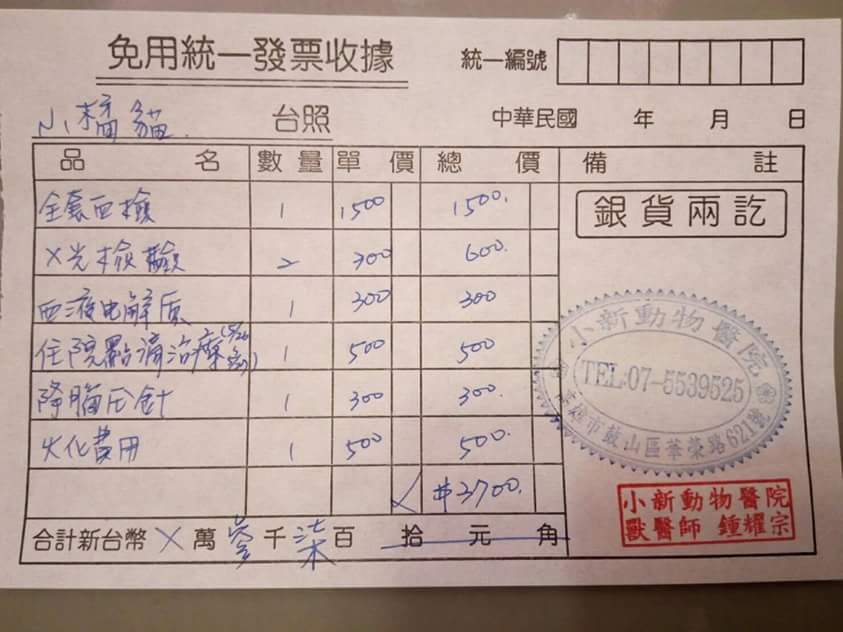 免用統一發票收據
統一編號
小橘貓 台照
中華民國 年 月 日
品名 數量 單價 總價 備註
全套血檢 1 1500 1500.
X光檢驗 2 300 600.
血液电解质 1 300 300
住院點滴治療 1 500 500
降腦压針 1 300 300.
火化費用 1 500 500.
#3700.
合計新台幣 X 萬 參 千 柒 百 拾 元 角
銀貨兩訖
小新動物醫院
TEL:07-5539525
高雄市鼓山區華榮路621號
小新動物醫院
獸醫師 鍾耀宗